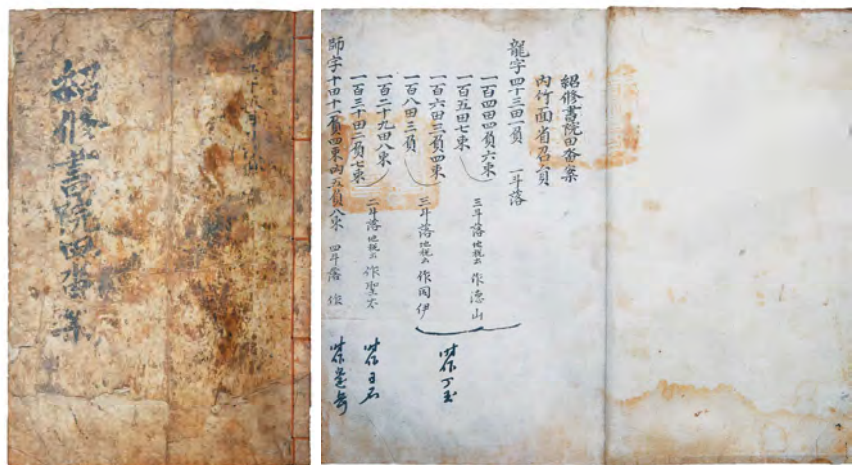 紹修書院田畓案
紹修書院田畓案
內竹面省召員
龍字四十三田一負 一斗落
一百四田四負六束
一百五田七束
三斗落地稅出 作德山
一百六田三負四束
一百八田三負
三斗落地稅出 作同伊
時作丁玉
一百二十九田八束
一百三十田二負七束
二斗落地稅出 作聖太
時作日石
師字十田十一負四束內五負八束 四斗落 作
時作